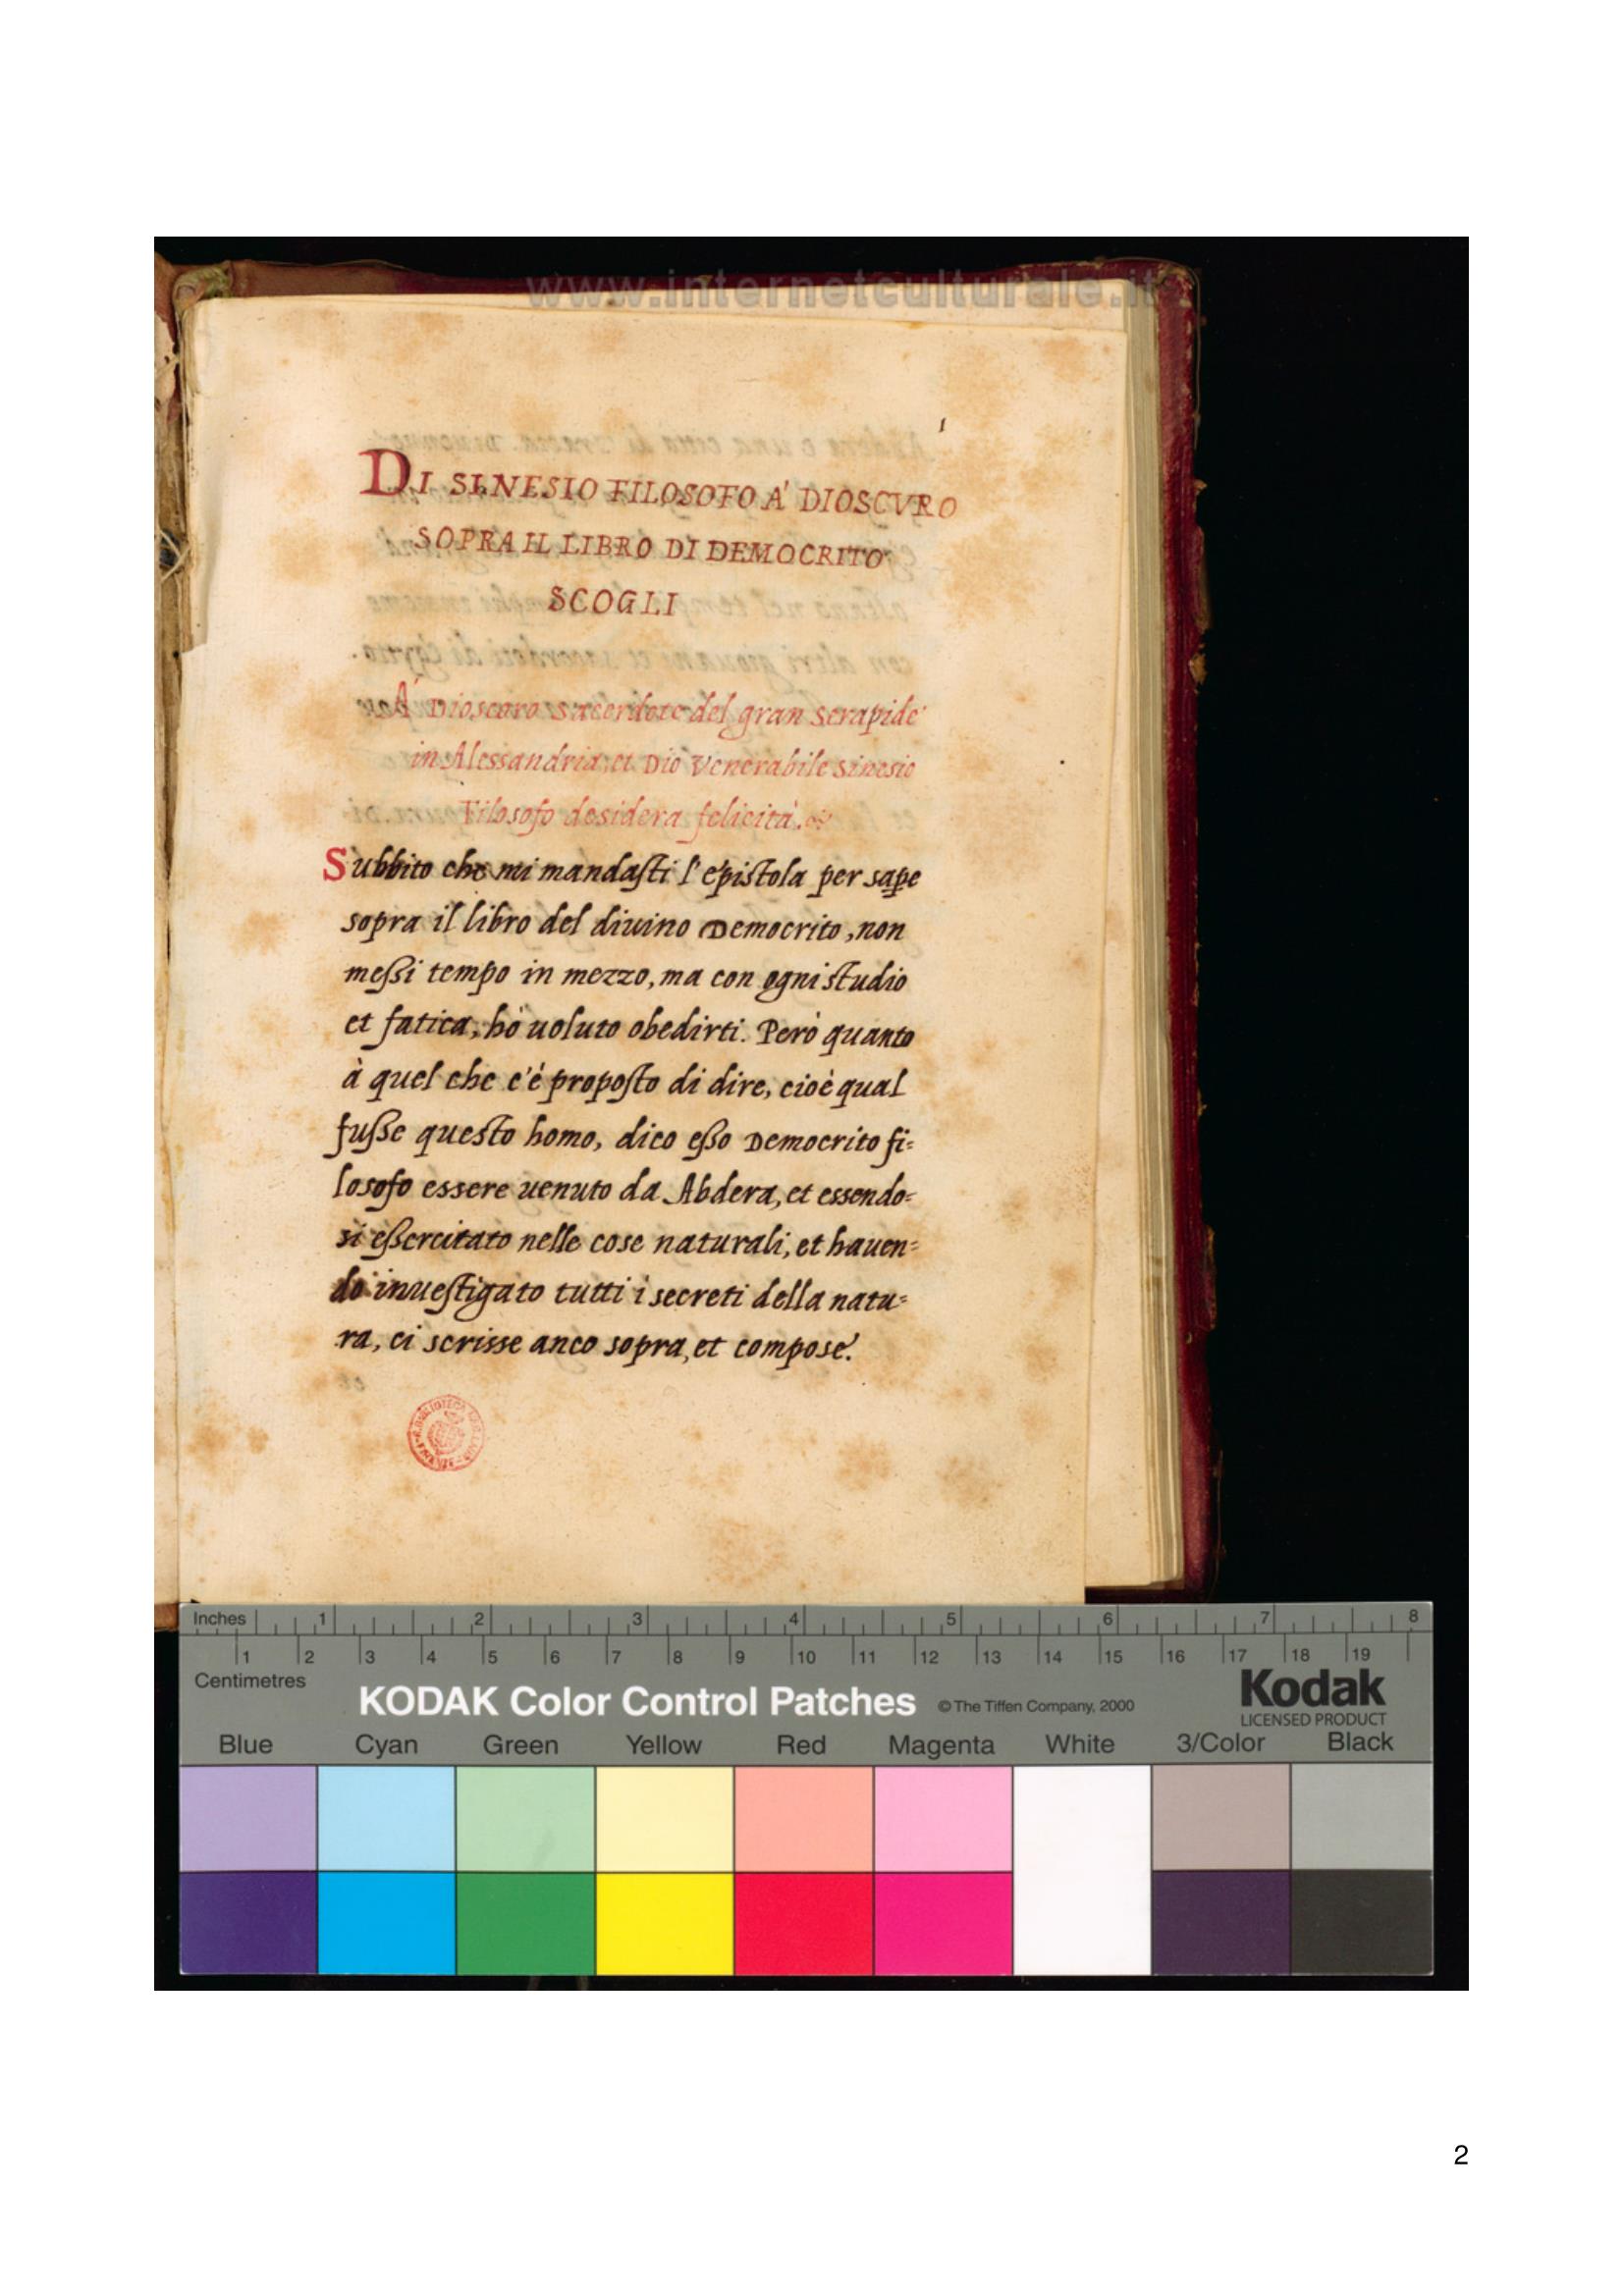 www.internetculturale.it
1
DI SINESIO FILOSOFO A' DIOSCVRO
SOPRA IL LIBRO DI DEMOCRITO
SCOGLI
A' Dioscoro sacerdote del gran serapide
in Alessandria, et Dio Venerabile sinesio
Filosofo desidera felicità.
Subbito che mi mandasti l'epistola per sape
sopra il libro del diuino Democrito, non
messi tempo in mezzo, ma con ogni studio
et fatica, hò uoluto obedirti. Però quanto
à quel che c'è proposto di dire, cioè qual
fusse questo homo, dico esso Democrito fi=
losofo essere uenuto da Abdera, et essendo=
si essercitato nelle cose naturali, et hauen=
do inuestigato tutti i secreti della natu=
ra, ci scrisse anco sopra, et compose.
Inches 1 2 3 4 5 6 7 8
1 2 3 4 5 6 7 8 9 10 11 12 13 14 15 16 17 18 19
Centimetres
KODAK Color Control Patches © The Tiffen Company, 2000 Kodak
LICENSED PRODUCT
Blue Cyan Green Yellow Red Magenta White 3/Color Black
2